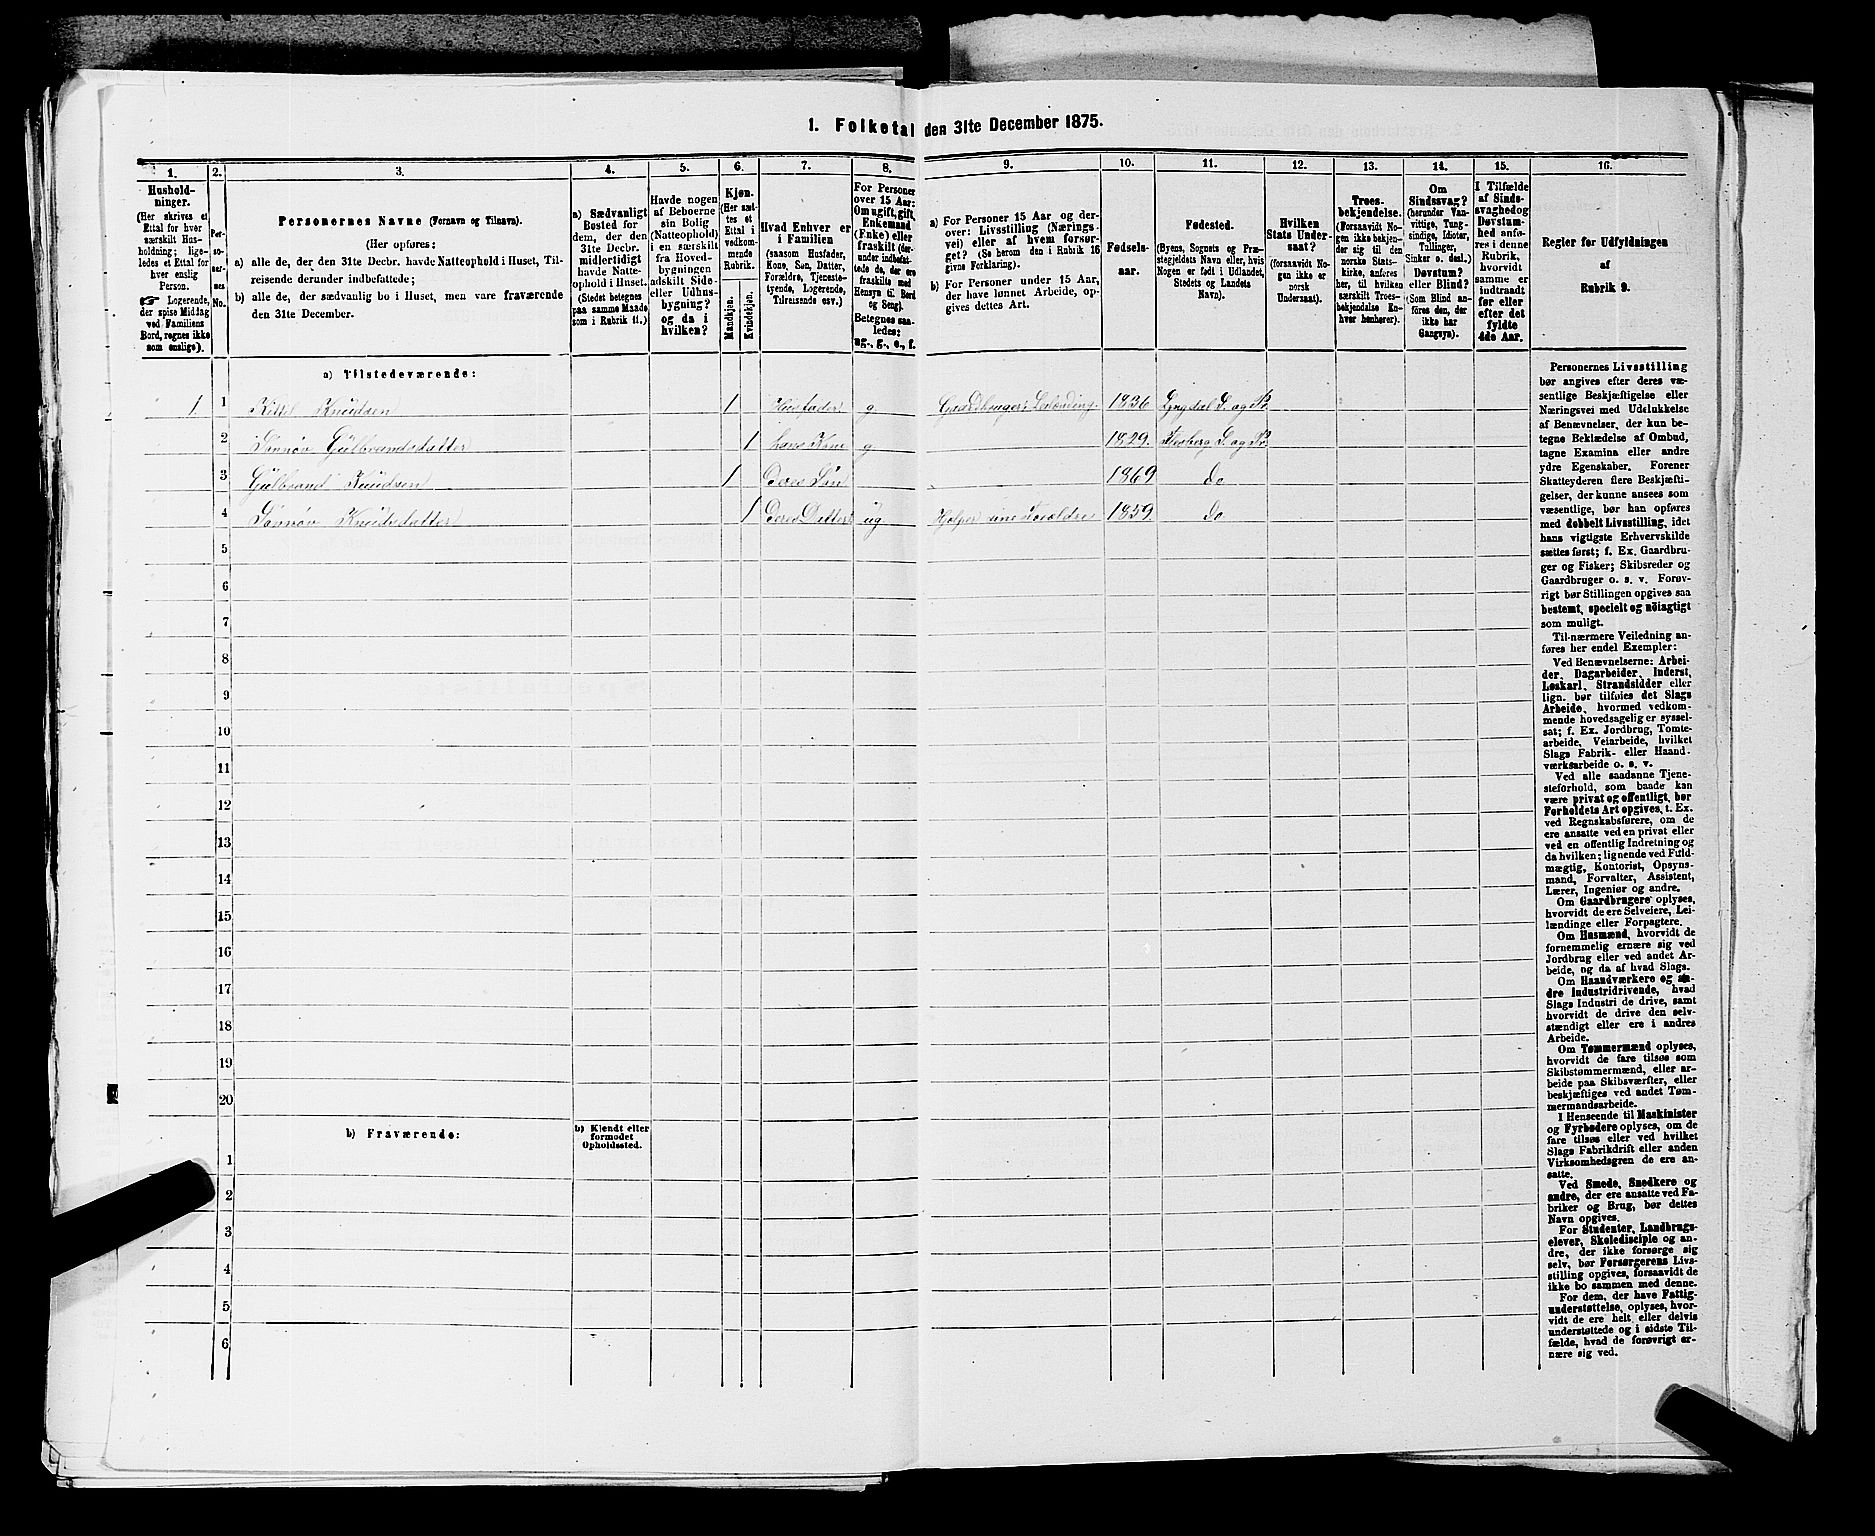 1. Folketal den 31te December 1875.
1. 2. 3. 4. 5. 6. 7. 8. 9. 10. 11. 12. 13. 14. 15. 16.
Hushold-
ninger.
(Her skrives et
Ettal for hver
særskilt Hus-
holdning; lige-
ledes et Ettal for
hver enslig
Person.
☞ Logerende,
der spise Middag
ved Familiens
Bord, regnes ikke
som enslige).
Per-
so-
ner-
nes
No.
Personernes Navne (Fornavn og Tilnavn).
(Her opføres:
a) alle de, der den 31te Decbr. havde Natteophold i Huset, Til-
reisende derunder indbefattede;
b) alle de, der sædvanlig bo i Huset, men vare fraværende
den 31te December.
a) Sædvanligt
Bosted for
dem, der den
31te Decbr.
midlertidigt
havde Natte-
ophold i Huset.
(Stedet betegnes
paa samme Maade
som i Rubrik 11.)
Havde nogen
af Beboerne
sin Bolig
(Natteophold)
i en særskilt
fra Hoved-
bygningen
adskilt Side-
eller Udhus-
bygning?
og da i
hvilken?
Kjøn.
(Her sæt-
tes et
Ettal i
vedkom-
mende
Rubrik.
Mandkjøn.
Kvindekjøn.
Hvad Enhver er
i Familien
(saasom Husfader,
Kone, Søn, Datter,
Forældre, Tjeneste-
tyende, Logerende,
Tilreisende osv.)
For Personer
over 15 Aar:
Om ugift, gift,
Enkemand
(Enke) eller
fraskilt (der-
under indbefat-
tede de, der ere
fraskilte med
Hensyn til Bord
og Seng).
Betegnes saa-
ledes:
ug., g., e., f.
a) For Personer 15 Aar og der-
over: Livsstilling (Nærings-
vei) eller af hvem forsør-
get? (Se herom den i Rubrik 16
givne Forklaring).
b) For Personer under 15 Aar,
der have lønnet Arbeide, op-
gives dettes Art.
Fødsels-
aar.
Fødested.
(Byens, Sognets og Præ-
stegjeldets Navn eller, hvis
Nogen er født i Udlandet,
Stedets og Landets
Navn).
Hvilken
Stats Under-
saat?
(forsaavidt No-
gen ikke er
norsk
Undersaat).
Troes-
bekjendelse.
(Forsaavidt No-
gen ikke bekjen-
der sig til den
norske Stats-
kirke, anføres
her, til hvilken
særskilt Troes-
bekjendelse En-
hver henhører).
Om
Sindssvag?
(herunder Van-
vittige, Tung-
sindige, Idioter,
Tullinger,
Sinker o. desl.)
Døvstum?
eller Blind?
(Som Blind an-
føres den, der
ikke har
Gangsyn).
I Tilfælde
af Sinds-
svaghed og
Døvstum-
hed anfø-
res i denne
Rubrik,
hvorvidt
samme er
indtraadt
før eller
efter det
fyldte
4de Aar.
Regler for Udfyldningen
af
Rubrik 9.
a) Tilstedeværende:
1 1 Kittel Knudsen 1 Husfader g Gaardbruger, Leilænding. 1836 Lyngdal S. og Pr.
2 Sønnøv Gulbrandsdatter 1 hans Kone g 1829. Flesberg S. og Pr.
3 Gulbrand Knudsen 1 Deres Søn 1869 do
4 Sønnøv Knudsdatter 1 Deres Datter ug Hjelper sine Forældre 1859. do
5
6
7
8
9
10
11
12
13
14
15
16
17
18
19
20
b) Fraværende:
b) Kjendt eller
formodet
Opholdssted.
1
2
3
4
5
6
Personernes Livsstilling
bør angives efter deres væ-
sentlige Beskjæftigelse eller
Næringsvei med Udelukkelse
af Benævnelser, der kun be-
tegne Beklædelse af Ombud,
tagne Examina eller andre
ydre Egenskaber. Forener
Skatteyderen flere Beskjæfti-
gelser, der kunne ansees som
væsentlige, bør han opføres
med dobbelt Livsstilling, idet
hans vigtigste Erhvervskilde
sættes først; f. Ex. Gaardbru-
ger og Fisker; Skibsreder og
Gaardbruger o. s. v. Forøv-
rigt bør Stillingen opgives saa
bestemt, specielt og nöiagtigt
som muligt.
Til nærmere Veiledning an-
føres her endel Exempler:
Ved Benævnelserne: Arbei-
der, Dagarbeider, Inderst,
Løskarl, Strandsidder eller
lign. bør tilføies det Slags
Arbeide, hvormed vedkom-
mende hovedsagelig er syssel-
sat; f. Ex. Jordbrug, Tomte-
arbeide, Veiarbeide, hvilket
Slags Fabrik- eller Haand-
værksarbeide o. s. v.
Ved alle saadanne Tjene-
steforhold, som baade kan
være privat og offentligt, bør
Forholdets Art opgives, t. Ex.
ved Regnskabsførere, om de
ere ansatte ved en privat eller
ved en offentlig Indretning og
da hvilken; lignende ved Fuld-
mægtig, Kontorist, Opsyns-
mand, Forvalter, Assistent,
Lærer, Ingeniør og andre.
Om Gaardbrugere oplyses,
hvorvidt de ere Selveiere, Lei-
lændinge eller Forpagtere.
Om Husmænd, hvorvidt de
fornemmelig ernære sig ved
Jordbrug eller ved andet Ar-
beide, og da af hvad Slags.
Om Haandværkere og an-
dre Industridrivende, hvad
Slags Industri de drive, samt
hvorvidt de drive den selv-
stændigt eller ere i andres
Arbeide.
Om Tømmermænd oplyses,
hvorvidt de fare tilsøs som
Skibstømmermænd, eller ar-
beide paa Skibsværfter, eller
beskjæftiges ved andet Tøm-
mermandsarbeide.
I Henseende til Maskinister
og Fyrbødere oplyses, om de
fare tilsøs eller ved hvilket
Slags Fabrikdrift eller anden
Virksomhedsgren de ere an-
satte.
Ved Smede, Snedkere og
andre, der ere ansatte ved Fa-
briker og Brug, bør dettes
Navn opgives.
For Studenter, Landbrugs-
elever, Skoledisciple og an-
dre, der ikke forsørge sig
selv, bør Forsørgerens Livs-
stilling opgives, forsaavidt de
ikke bo sammen med denne.
For dem, der have Fattig-
understøttelse, oplyses, hvor-
vidt de ere helt eller delvis
understøttede og i sidste Til-
fælde, hvad de forøvrigt er-
nære sig ved.